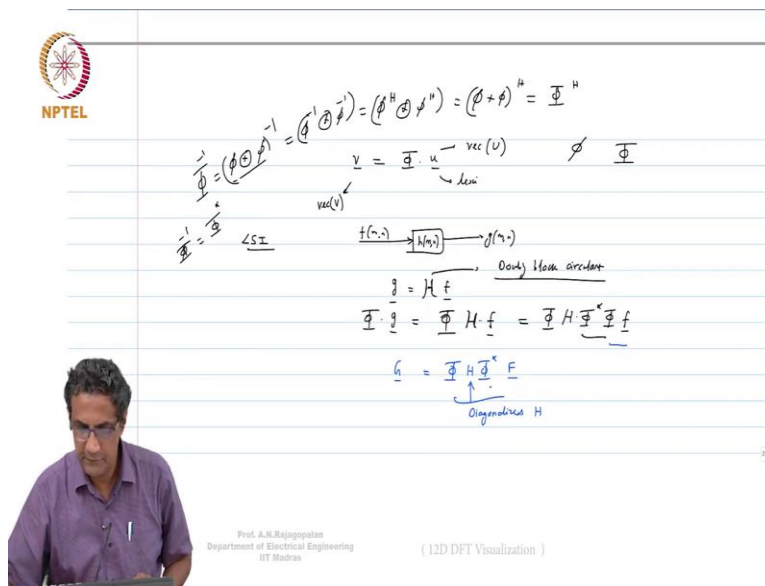 NPTEL
Φ̲⁻¹ = (ϕ ⊗ ϕ)⁻¹ = (ϕ⁻¹ ⊗ ϕ⁻¹) = (ϕᴴ ⊗ ϕᴴ) = (ϕ + ϕ)ᴴ = Φᴴ
v = Φ · u vec(U) ϕ Φ
lexi
vec(V)
Φ⁻¹ = Φ*
LSI f(m,n) h(m,n) g(m,n)
g = H f Doubly block circulant
Φ · g = Φ H · f = Φ H · Φ* Φ f
G = Φ H Φ* F
Diagonalizes H
Prof. A.N.Rajagopalan
Department of Electrical Engineering
IIT Madras
( 12D DFT Visualization )